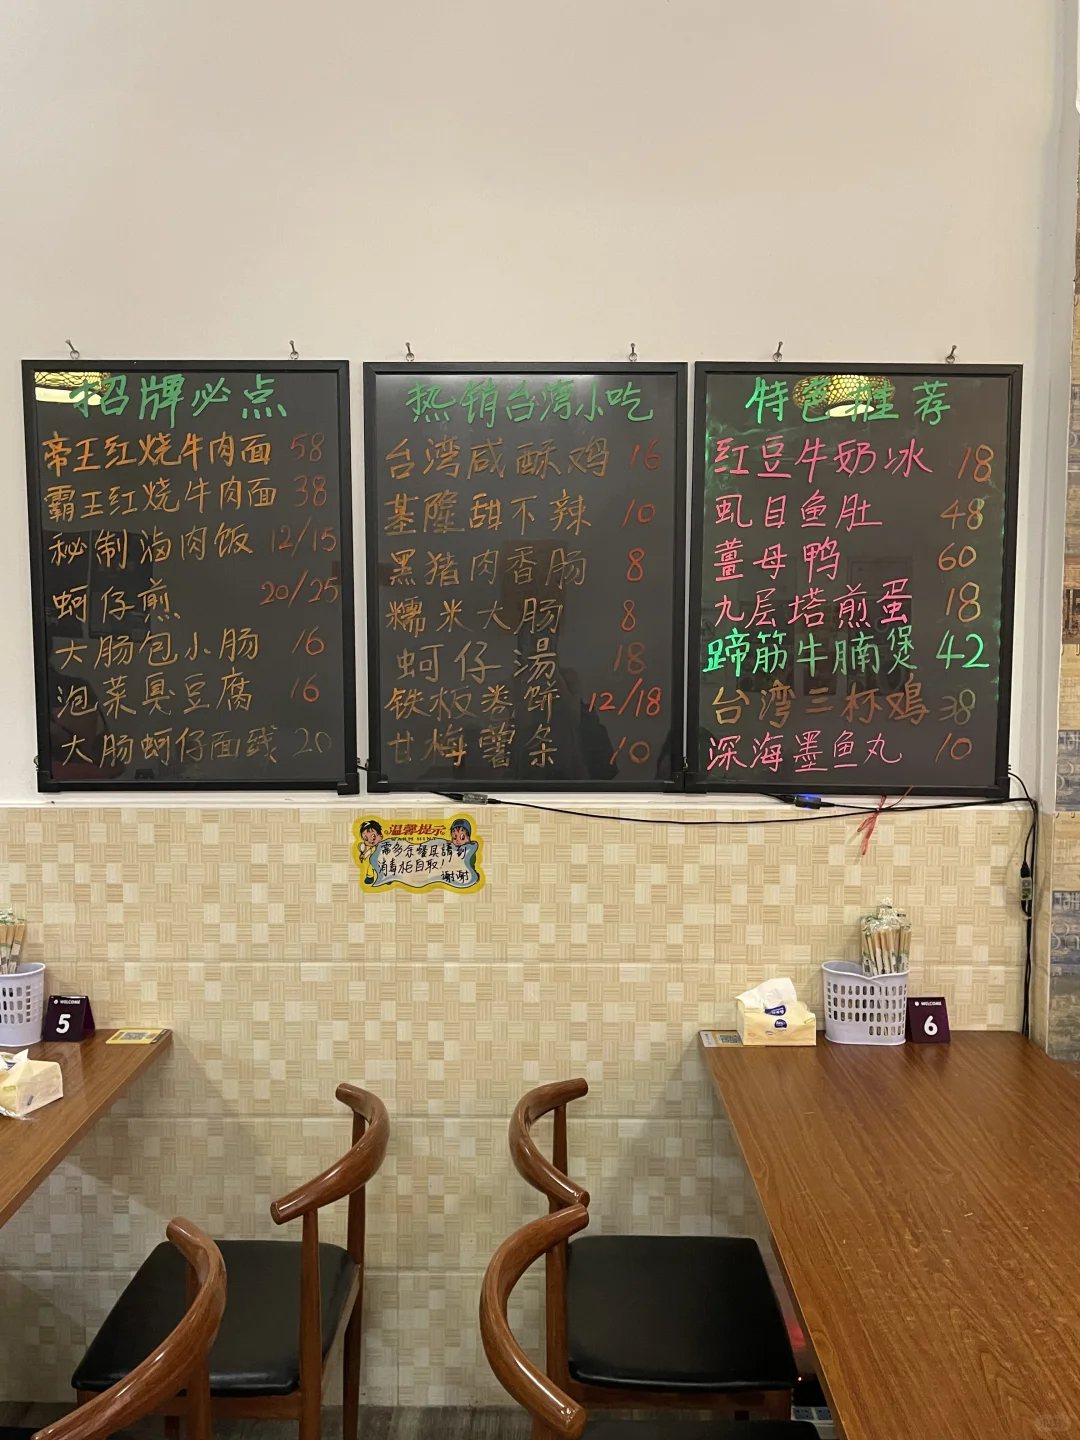 招牌必点
帝王红烧牛肉面 58
霸王红烧牛肉面 38
秘制卤肉饭 12/15
蚵仔煎 20/25
大肠包小肠 16
泡菜臭豆腐 16
大肠蚵仔面线 20
热销台湾小吃
台湾咸酥鸡 16
基隆甜不辣 10
黑猪肉香肠 8
糯米大肠 8
蚵仔湯 18
铁板卷饼 12/18
甘梅薯条 10
特色推荐
红豆牛奶冰 18
虱目鱼肚 48
薑母鸭 60
九层塔煎蛋 18
蹄筋牛腩煲 42
台湾三杯鳮 38
深海墨鱼丸 10
温馨提示
需多余餐具請到
消毒柜自取！
谢谢
WELCOME
5
WELCOME
6